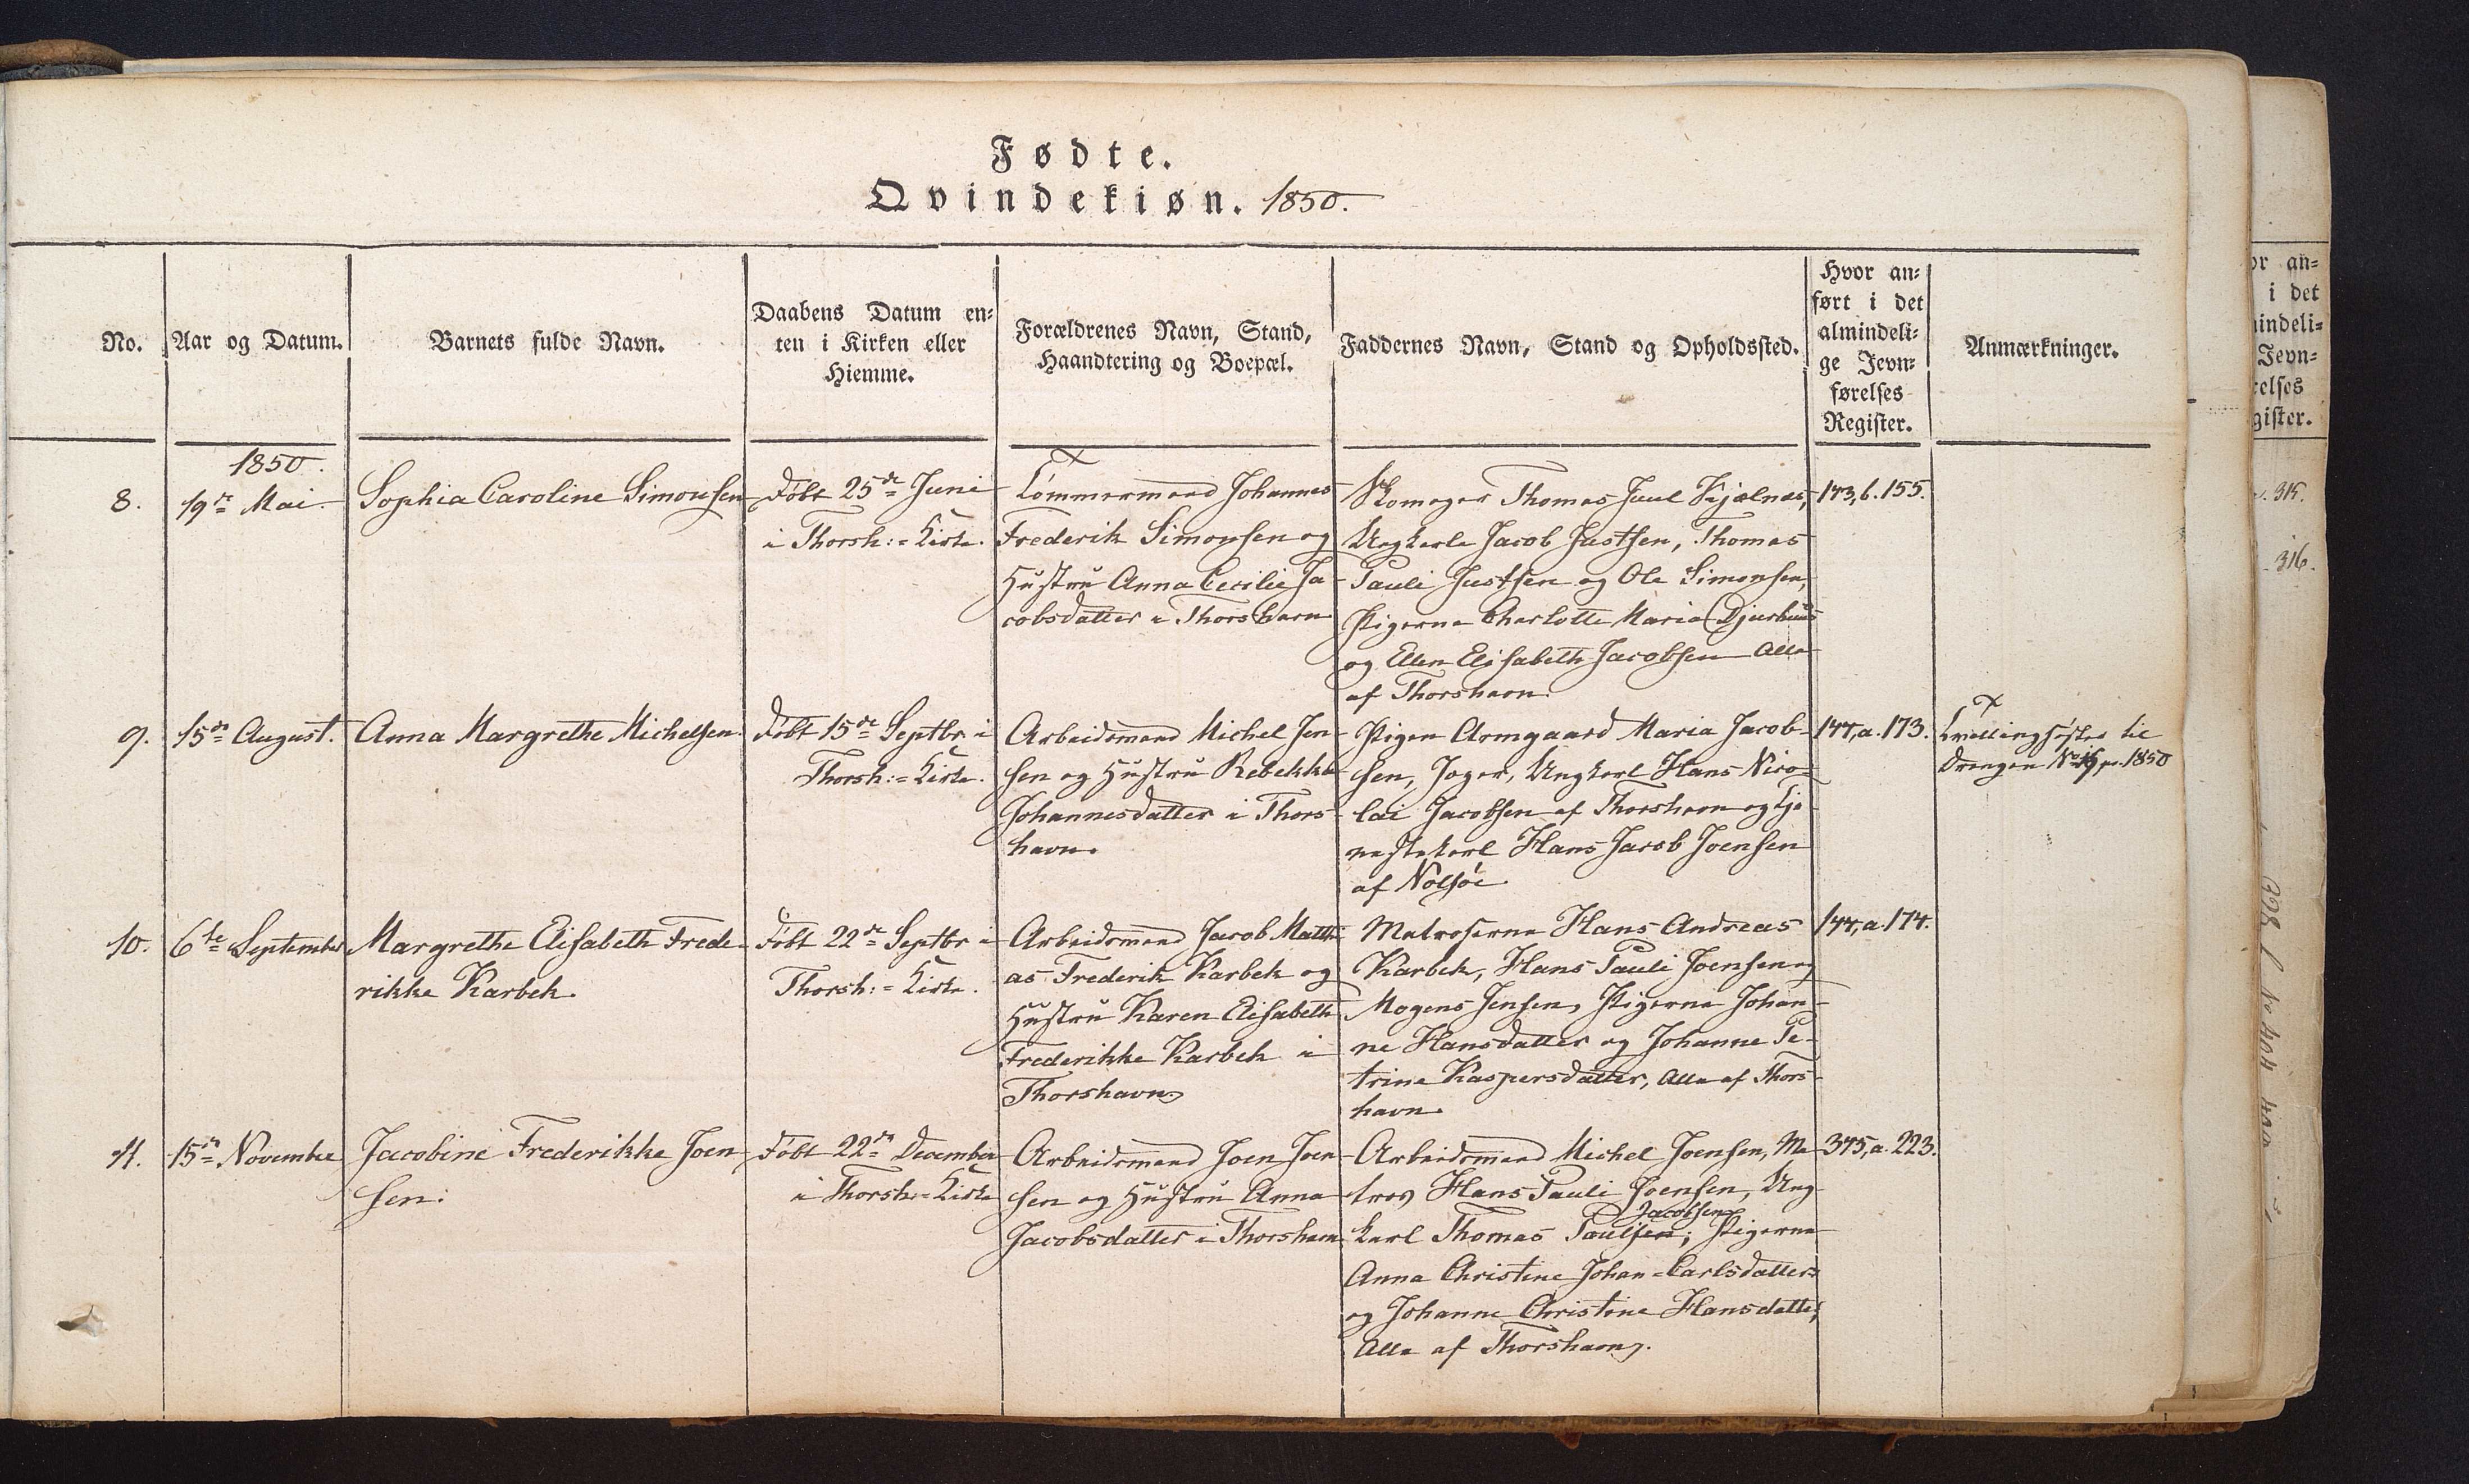 Fødte.
Qvindekiøn. 1850.
No.
Aar og Datum.
Barnets fulde Navn.
Daabens Datum en-
ten i Kirken eller
Hiemme.
Forældrenes Navn, Stand,
Haandtering og Boepæl.
Faddernes Navn, Stand og Opholdssted.
Hvor an-
ført i det
almindeli-
ge Jevn-
førelses
Register.
Anmærkninger.
1850.
8.
19de Mai.
Sophia Caroline Simonsen
Døbt 25de Juni
i Thorsh:= Kirke.
Tømmermand Johannes
Frederik Simonsen og
Hustru Anna Cecilie Ja
cobsdatter i Thorshavn
Skomager Thomas Juul Kjølnæs,
Ungkarle Jacob Justsen, Thomas
Pauli Justsen og Ole Simonsen,
Pigerne Charlotte Maria Djurhuus
og Ellen Elisabeth Jacobsen Alle
af Thorshavn.
143, b. 155.
9.
15de August.
Anna Margrethe Michelsen.
Døbt 15de Septbr i
Thorsh:= Kirke.
Arbeidsmand Michel Jen-
sen og Hustru Rebekka
Johannesdatter i Thors-
havn.
Pigen Armgaard Maria Jacob-
sen, Ungkarl Hans Nico-
lai Jacobsen af Thorshavn og Tje
nestekarl Hans Jacob Joensen
af Nolsöe
144, a. 173.
Tvillingsöster til
Drengen No 1850
10.
6te September
Margrethe Elisabeth Frede-
rikke Karbek.
Døbt 22de Septbr i
Thorsh:= Kirke.
Arbeidsmand Jacob Matthi
as Frederik Karbek og
Hustru Karen Elisabeth
Frederikke Karbek i
Thorshavn.
Matroserne Hans Andreas
Karbek, Hans Pauli Joensen og
Mogens Jensen, Pigerne Johan-
ne Hansdatter og Johanne Pe-
trine Kaspersdatter, Alle af Thors-
havn.
144, a. 174.
11.
15de November
Jacobine Frederikke Joen-
sen.
Døbt 22de December
i Thorsh:= Kirke
Arbeidsmand Joen Joen-
sen og Hustru Anna
Jacobsdatter i Thorshavn
Arbeidsmand Michel Joensen, Ma-
tros Hans Pauli Joensen, Ung-
Jacobsen
karl Thomas Paulsen; Pigerne
Anna Christine Johan-Carlsdatter
og Johanne Christine Hansdatter,
Alle af Thorshavn.
345, a. 223.
or an-
i det
indeli-
Jevn-
relses
gister.
315.
316.